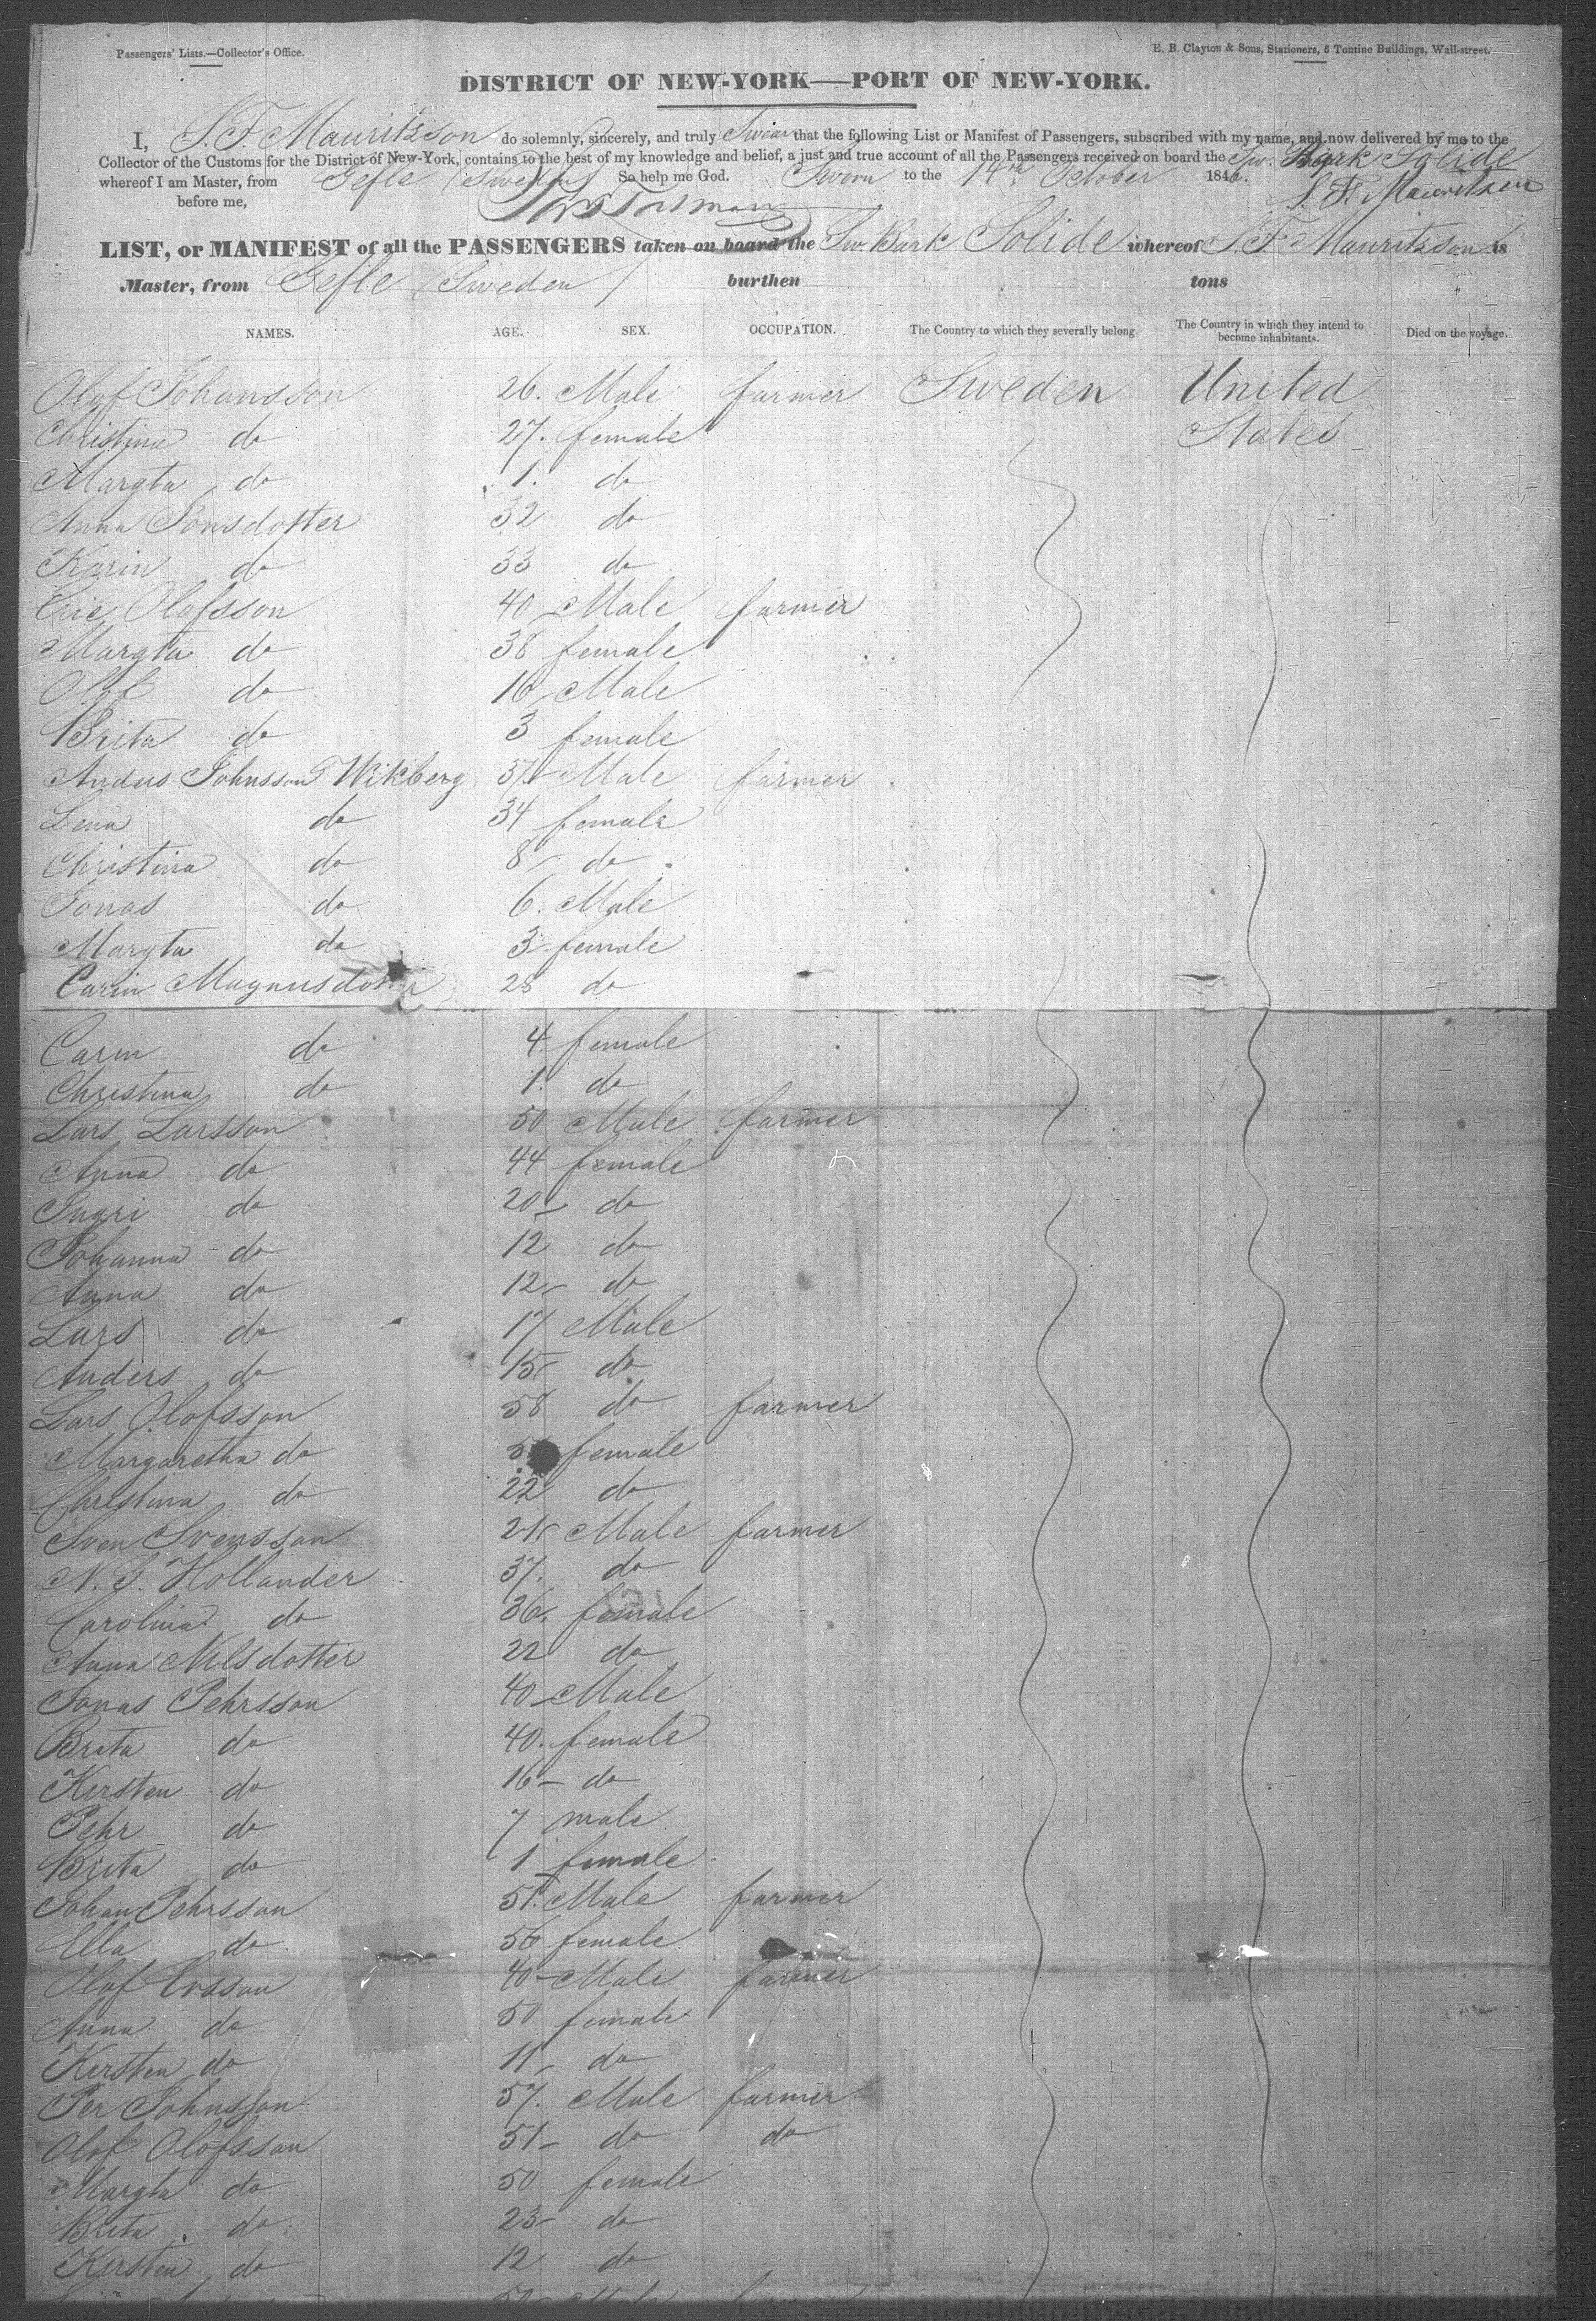 Passengers' Lists.—Collector's Office.
E. B. Clayton & Sons, Stationers, 6 Tontine Buildings, Wall-street.
DISTRICT OF NEW-YORK—PORT OF NEW-YORK.
I, S. F. Mauritzson do solemnly, sincerely, and truly Swear that the following List or Manifest of Passengers, subscribed with my name, and now delivered by me to the
Collector of the Customs for the District of New-York, contains to the best of my knowledge and belief, a just and true account of all the Passengers received on board the Sw. Bark Solide
whereof I am Master, from Gefle (Sweden) So help me God. Sworn to the 14th October 1846.
before me, S. F. Mauritzson
LIST, or MANIFEST of all the PASSENGERS taken on board the Sw. Bark Solide whereof S. F. Mauritzson is
Master, from Gefle (Sweden) burthen tons
NAMES. AGE. SEX. OCCUPATION. The Country to which they severally belong. The Country in which they intend to become inhabitants. Died on the voyage.
Olof Johansson 26. Male farmer Sweden United
Christina do 27. female States
Margta do 1. do
Anna Jonsdotter 32 do
Karin do 33 do
Eric Olofsson 40 Male farmer
Margta do 38 female
Olof do 16 Male
Brita do 3 female
Anders Johnsson Wikberg 37 Male farmer
Lena do 34 female
Christina do 8 do
Jonas do 6. Male
Margta do 3 female
Carin Magnusdotter 28 do
Carin do 4. female
Christina do 1. do
Lars Larsson 50 Male farmer
Anna do 44 female
Ingri do 20 do
Johanna do 12 do
Anna do 12 do
Lars do 17 Male
Anders do 15 do
Lars Olofsson 58 do farmer
Margaretha do female
Christina do 22 do
Sven Svensson 21 Male farmer
N. J. Hollander 37. do
Carolina do 36. female
Anna Nilsdotter 22 do
Jonas Pehrsson 40 Male
Brita do 40. female
Kersten do 16 do
Pehr do 7 male
Brita do 1 female
Johan Pehrsson 51. Male farmer
Ella do 56 female
Olof Ersson 40 Male farmer
Anna do 50 female
Kersten do 11 do
Per Johnsson 57. Male farmer
Olof Olofsson 51 do do
Margta do 50 female
Brita do 23 do
Kersten do 12 do